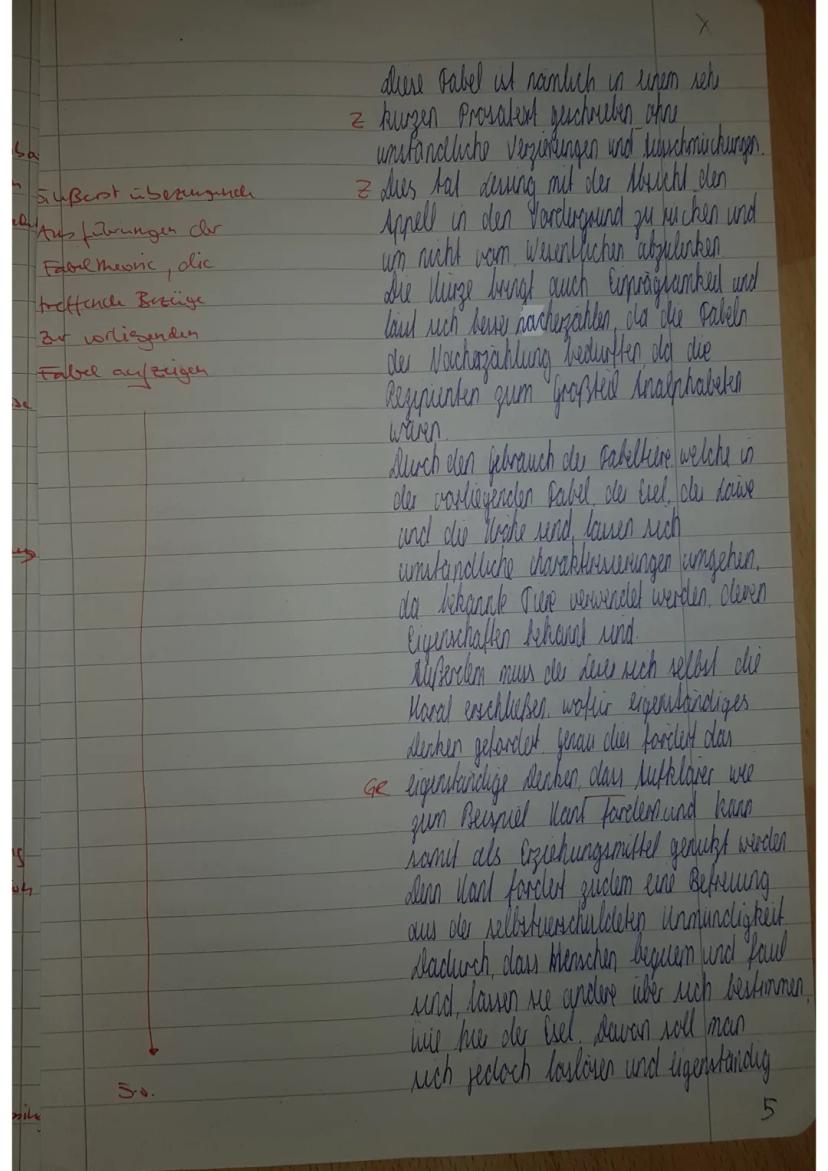 X
diese Fabel ist nämlich in einem sehr
Z kurzen Prosatext geschrieben ohne
umständliche Verzierungen und Ausschmückungen.
Z Dies tat Lessing mit der Absicht den
Appell in den Vordergrund zu rücken und
um nicht vom Wesentlichen abzulenken
Die Kürze bringt auch Einprägsamkeit und
lässt sich besser nacherzählen, da die Fabeln
der Nacherzählung bedurften, da die
Rezipienten zum Großteil Analphabeten
waren.
Durch den Gebrauch der Fabeltiere, welche in
der vorliegenden Fabel, der Esel, der Löwe
und die Krähe sind, lassen sich
umständliche Charakterisierungen umgehen,
da bekannte Tiere verwendet werden, deren
Eigenschaften bekannt sind.
Außerdem muss der Leser sich selbst die
Moral erschließen, wofür eigenständiges
Denken gefordert. Genau dies fordert das
GR eigenständige Denken, dass Aufklärer wie
zum Beispiel Kant fordern und kann
somit als Erziehungsmittel genutzt werden
Denn Kant fordert zudem eine Befreiung
aus der selbstverschuldeten Unmündigkeit.
Dadurch, dass Menschen bequem und faul
sind, lassen sie andere über sich bestimmen,
wie hier der Esel. Davon soll man
sich jedoch loslösen und eigenständig
5
Äußerst überzeugende
Ausführungen der
Fabeltheorie, die
treffende Bezüge
zur vorliegenden
Fabel aufzeigen
S.o.